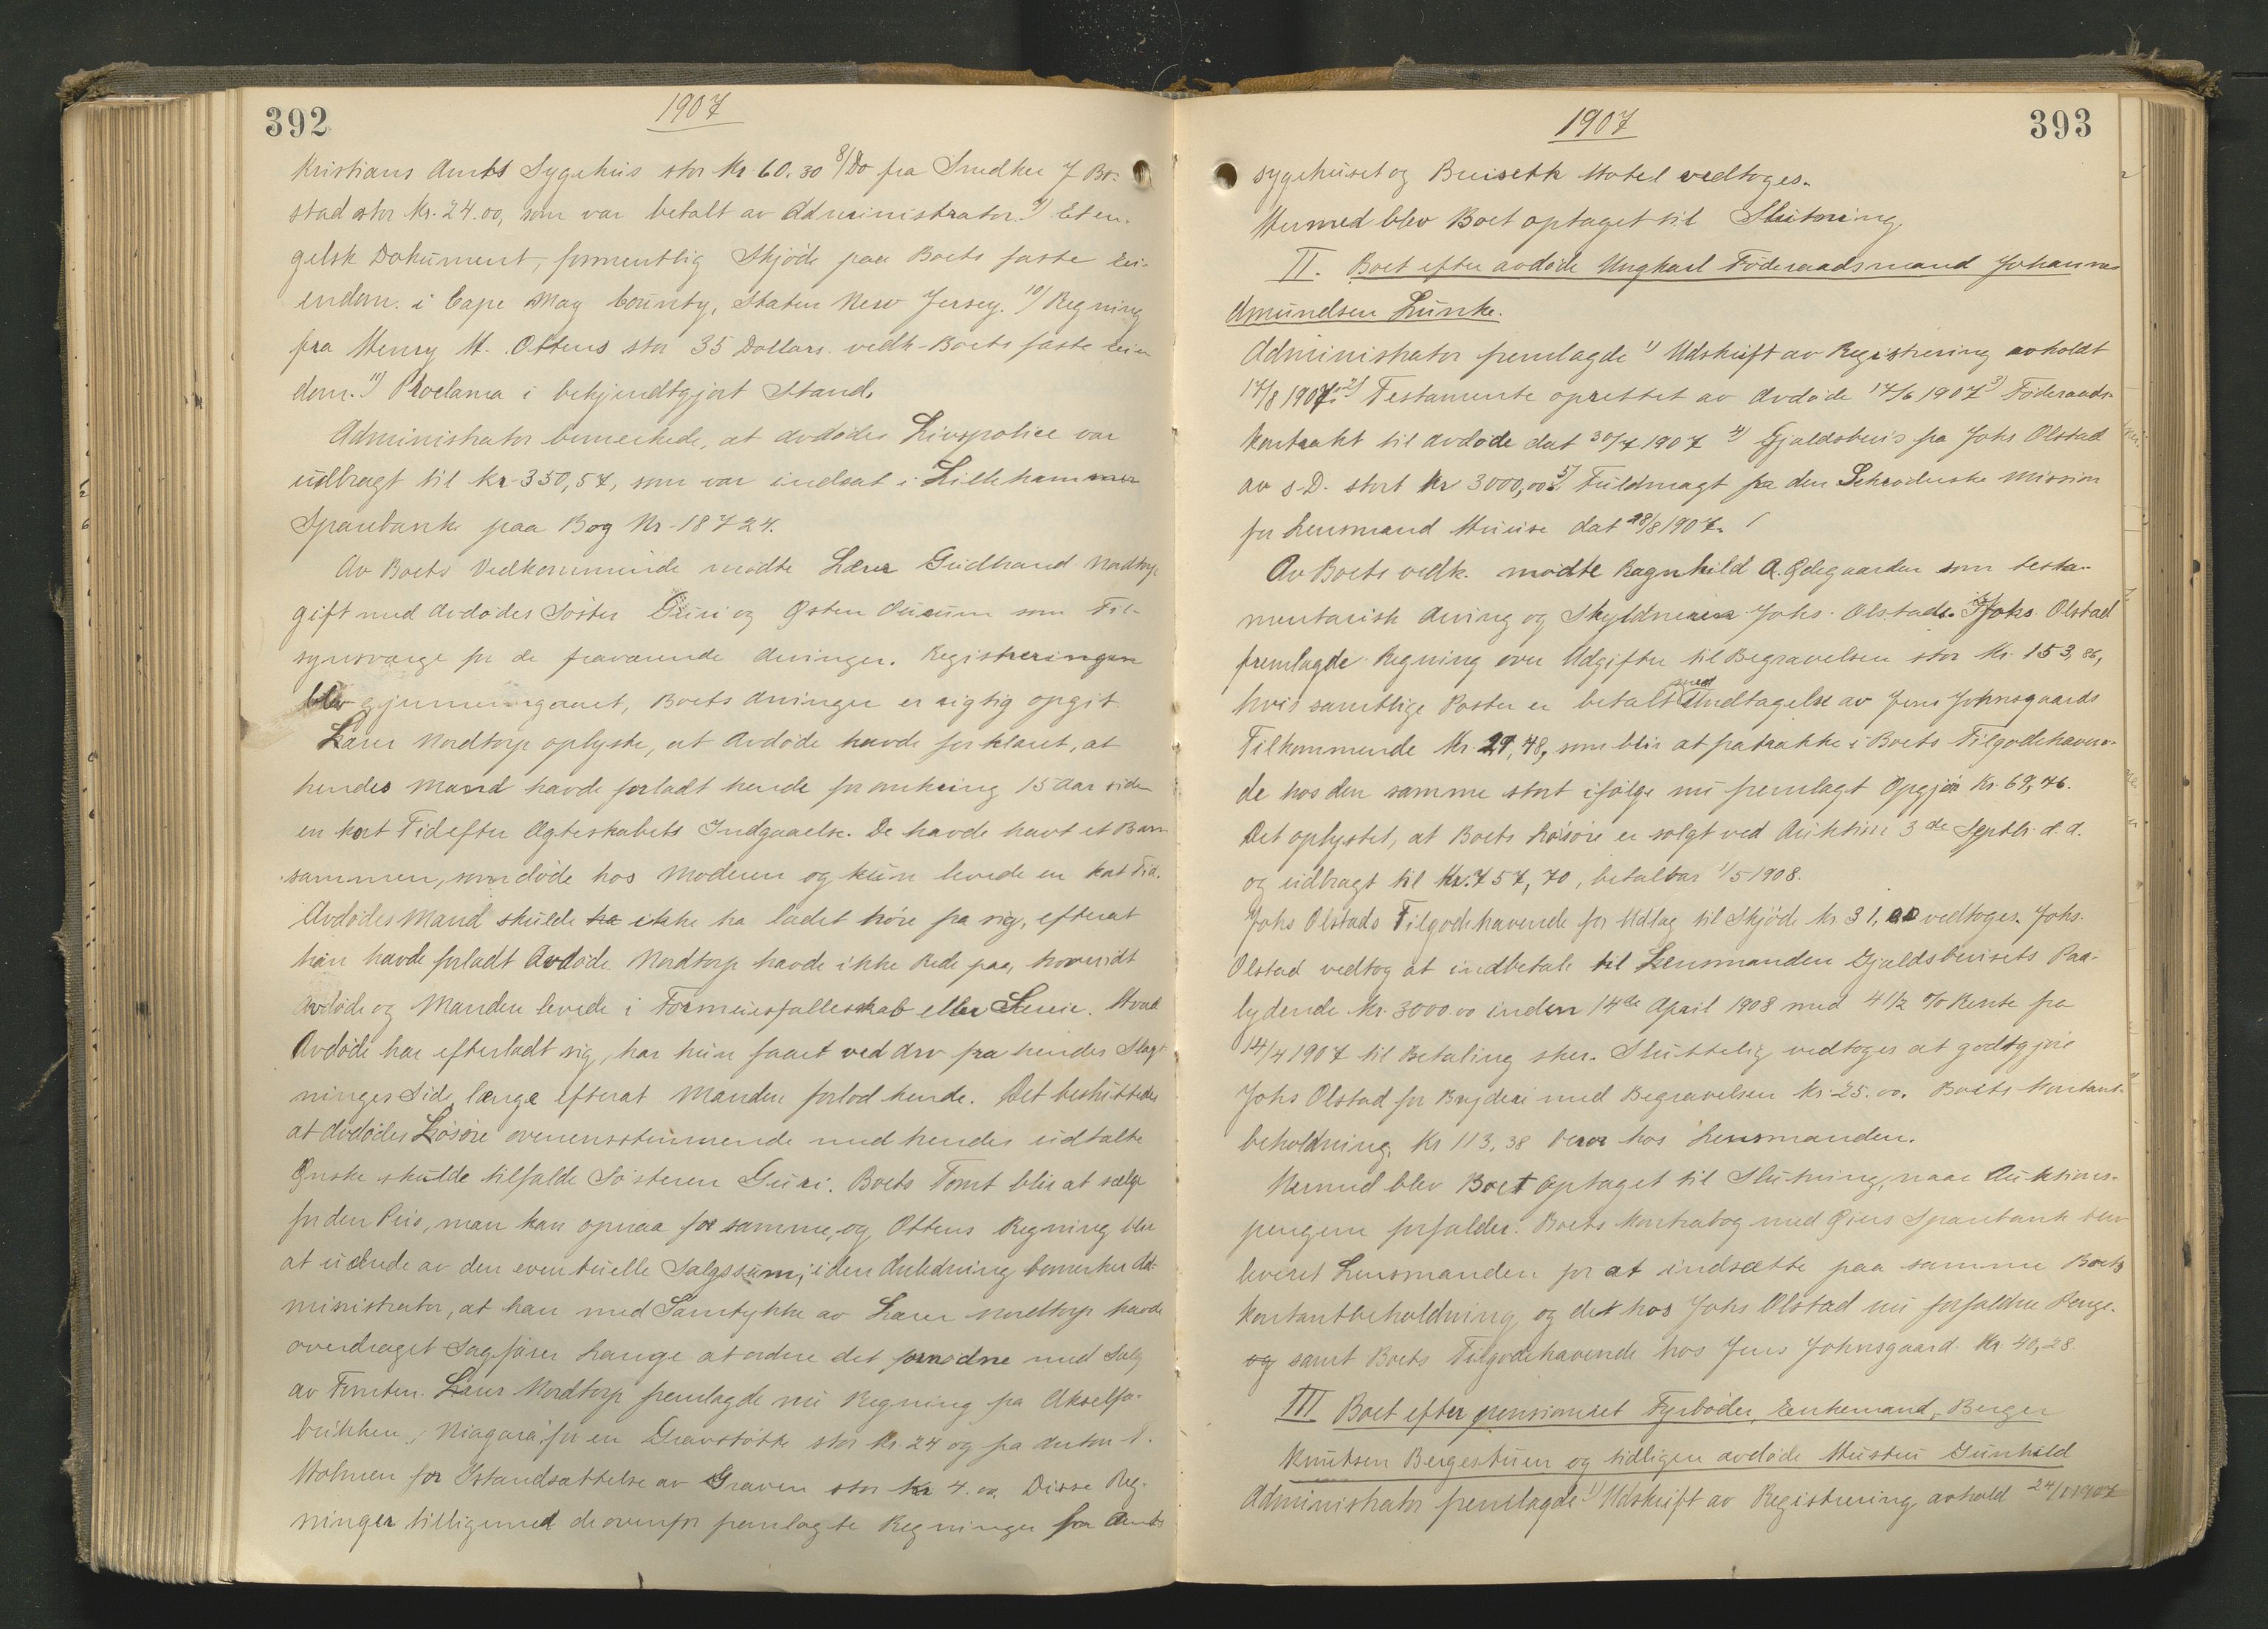 392
1907
Kristians Amts Sygehus stor Kr. 60.30 8) Do fra Snedker J Bo-
stad stor Kr. 24.00, som var betalt av Administrator. 9) Et en-
gelsk Dokument, formentlig Skjöde paa Boets faste Ei-
endom. i Cape May County, Staten New Jersey. 10) Regning
fra Henry H. Ottens stor 35 Dollars. vedk. Boets faste Eien
dom. 11) Proclama i bekjendtgjort Stand.
Administrator bemerkede, at avdødes Livspolice var
udbragt til kr 350,57, som var indsat i Lillehammer
Sparebank paa Bog Nr. 18724.
Av Boets Vedkommende mødte Lærer Gudbrand Nordtorp
gift med Avdødes Søster Guri og Østen Aurum som Til-
synsværge for de fraværende Arvinger. Registreringen
blev gjennemgaaet, Boets Arvinger er rigtig opgit.
Lærer Nordtorp oplyste, at Avdøde havde forklaret, at
hendes Mand havde forladt hende for omkring 15 Aar siden
en kort Tid efter Ægteskabets Indgaaelse. De havde havt et Barn
sammen, som døde hos Moderen og kun levede en kort Tid.
Avdødes Mand skulde ha ikke ha ladet høre fra sig, efterat
han havde forladt Avdøde. Nordtorp havde ikke Rede paa, hvorvidt
Avdøde og Manden levede i Formuesfællesskab eller Særeie. Hvad
Avdøde har efterladt sig, har hun faaet ved Arv fra hendes Slægt-
ninges Side, længe efterat Manden forlod hende. Det besluttedes
at Avdødes Løsøre overensstemmende med hendes udtalte
Ønske skulde tilfalde Søsteren Guri. Boets Tomt blir at sælge
for den Pris, man kan opnaa for samme, og Ottens Regning blir
at udrede av den eventuelle Salgssum; i den Anledning bemerker Ad-
ministrator, at han med Samtykke av Lærer Nordtorp havde
overdraget Sagfører Lange at ordne det fornødne med Salg
av Tomten. Lærer Nordtorp fremlagde nu Regning fra Akselfa-
brikken, Niagara for en Gravstøtte stor Kr. 24 og fra Anton E.
Holmen for Istandsættelse av Graven stor kr 4.00. Disse Reg-
ninger tilligemed de ovenfor fremlagte Regninger fra Amts
393
1907
sygehuset og Hotel vedtoges.
Hermed blev Boet optaget til Slutning.
II. Boet efter avdøde Ungkarl Føderaadsmand Johannes
Amundsen Lunke.
Administrator fremlagde 1) Udskrift av Registrering avholdt
17/8 1907. 2) Testamente oprettet av Avdøde 17/6 1907 3) Føderaads-
kontrakt til Avdøde dat 30/7 1907 4) Gjældsbevis fra Johs Olstad
av s.D. stort Kr 3000,00 5) Fuldmagt fra den Schrøderske Mission
for Lensmand Huuse dat 28/8 1907.
Av Boets vedk. mødte Ragnhild A. Ødegaarden som testa-
mentarisk Arving og Skyldneren Johs. Olstad. Johs Olstad
fremlagde Regning over Udgifter til Begravelsen stor Kr. 153,86,
hvis samtlige Poster er betalt med Undtagelse av Jens Johnsgaards
Tilkommende Kr. 29,48, som blir at fratrække i Boets Tilgodehaven-
de hos den samme stort ifølge nu fremlagt Opgjør Kr. 69,76.
Det oplystes, at Boets Løsøre er solgt ved Auktion 3de Septbr. d.d.
og udbragt til Kr. 757,70, betalbar 1/5 1908.
Johs Olstads Tilgodehavende for Udlæg til Skjöde Kr 31,00 vedtoges. Johs.
Olstad vedtog at indbetale til Lensmanden Gjældsbevisets Paa-
lydende Kr. 3000.00 inden 14de April 1908 med 4 1/2 % Rente fra
14/4 1907 til Betaling sker. Sluttelig vedtoges at godtgjøre
Johs Olstad for Bryderi med Begravelsen Kr. 25.00. Boets Kontant-
beholdning, Kr 113,38 beror hos Lensmanden.
Hermed blev Boet optaget til Slutning, naar Auktions-
pengene forfalder. Boets Kontrabog med Øiers Sparebank blev
leveret Lensmanden for at indsætte paa samme Boets
Kontantbeholdning og det hos Johs Olstad nu forfaldne Penge-
og samt Boets Tilgodehavende hos Jens Johnsgaard Kr. 40,28.
III Boet efter pensioneret Fyrbøder, Enkemand, Berger
Knutsen Bergestuen og tidligere avdøde Hustru Gunhild
Administrator fremlagde 1) Udskrift av Registrering avhold